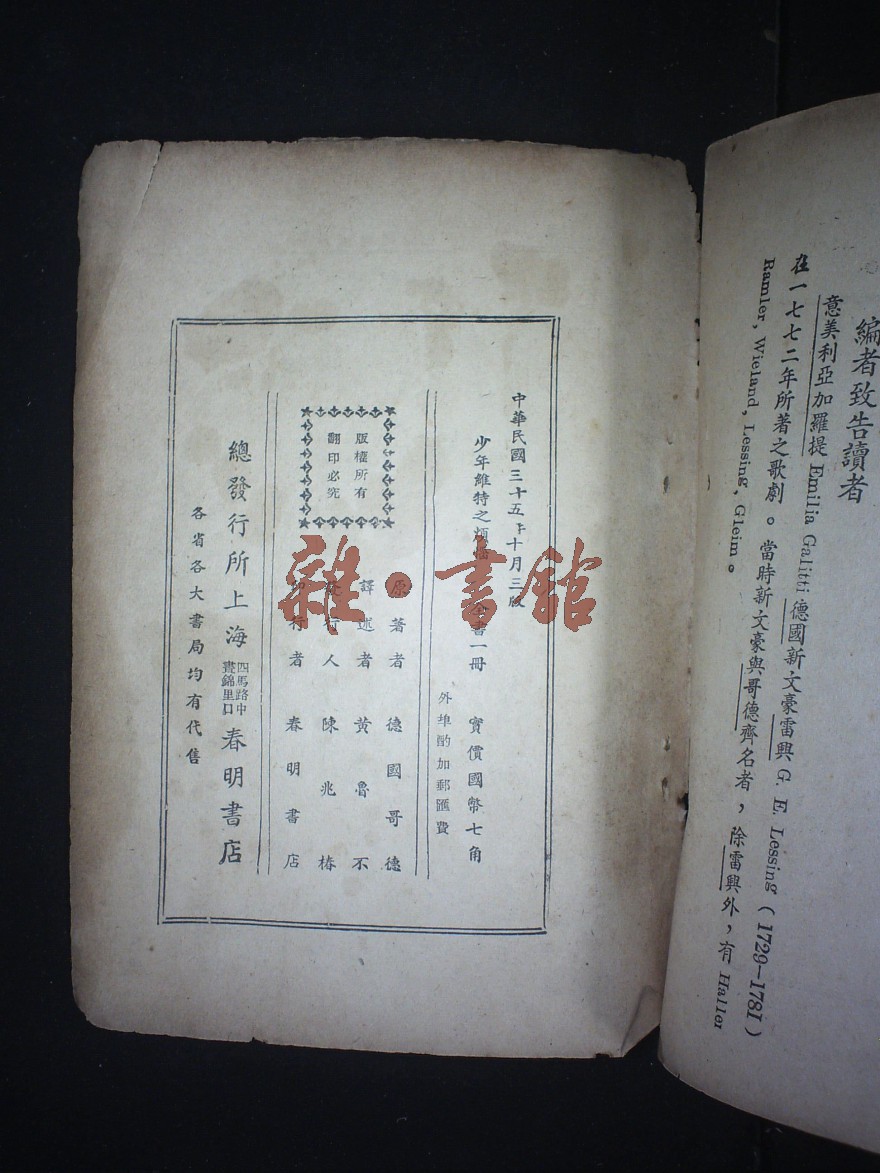 編者致告讀者
意美利亞加羅提 Emilia Galitti 德國新文豪雷興 G. E. Lessing (1729—1781)
在一七七二年所著之歌劇。當時新文豪與哥德齊名者，除雷興外，有 Haller
Ramler, Wieland, Lessing, Gleim。
中華民國三十五年十月三版
少年維特之煩惱 全書一冊 實價國幣七角
外埠酌加郵匯費
原著者 德國哥德
譯述者 黃魯不
發行人 陳兆椿
印行者 春明書店
版權所有
翻印必究
總發行所上海 四馬路中 晝錦里口 春明書店
各省各大書局均有代售
雜·書館